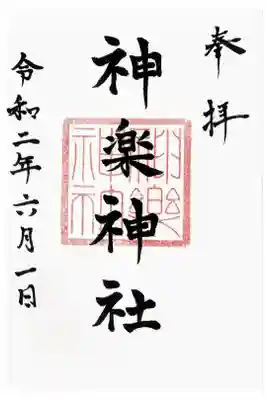 奉拝
神楽神社
令和二年六月一日